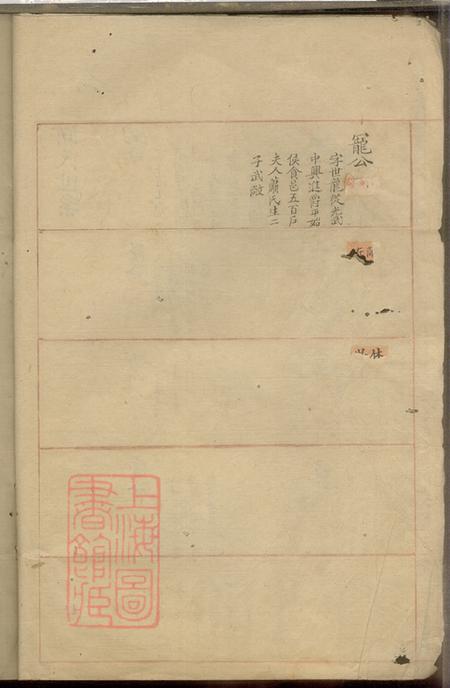 寵公
字世寵從光武
中興進爵平始
侯食邑五百戶
夫人蕭氏生二
子武敞
林
上海圖
書館藏